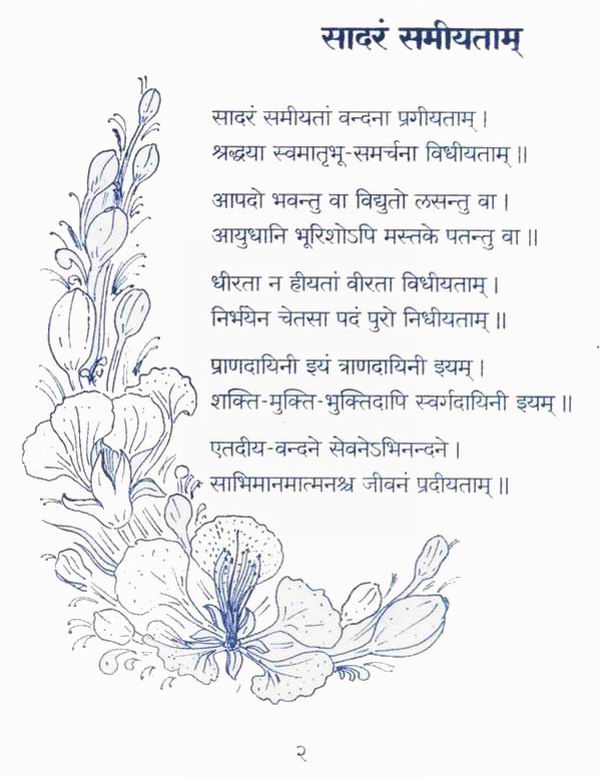 सादरं समीयताम्
सादरं समीयतां वन्दना प्रगीयताम् ।
श्रद्धया स्वमातृभू-समर्चना विधीयताम् ॥
आपदो भवन्तु वा विद्युतो लसन्तु वा ।
आयुधानि भूरिशोऽपि मस्तके पतन्तु वा ॥
धीरता न हीयतां वीरता विधीयताम् ।
निर्भयेन चेतसा पदं पुरो निधीयताम् ॥
प्राणदायिनी इयं त्राणदायिनी इयम् ।
शक्ति-मुक्ति-भुक्तिदापि स्वर्गदायिनी इयम् ॥
एतदीय-वन्दने सेवनेऽभिनन्दने ।
साभिमानमात्मनश्च जीवनं प्रदीयताम् ॥
२